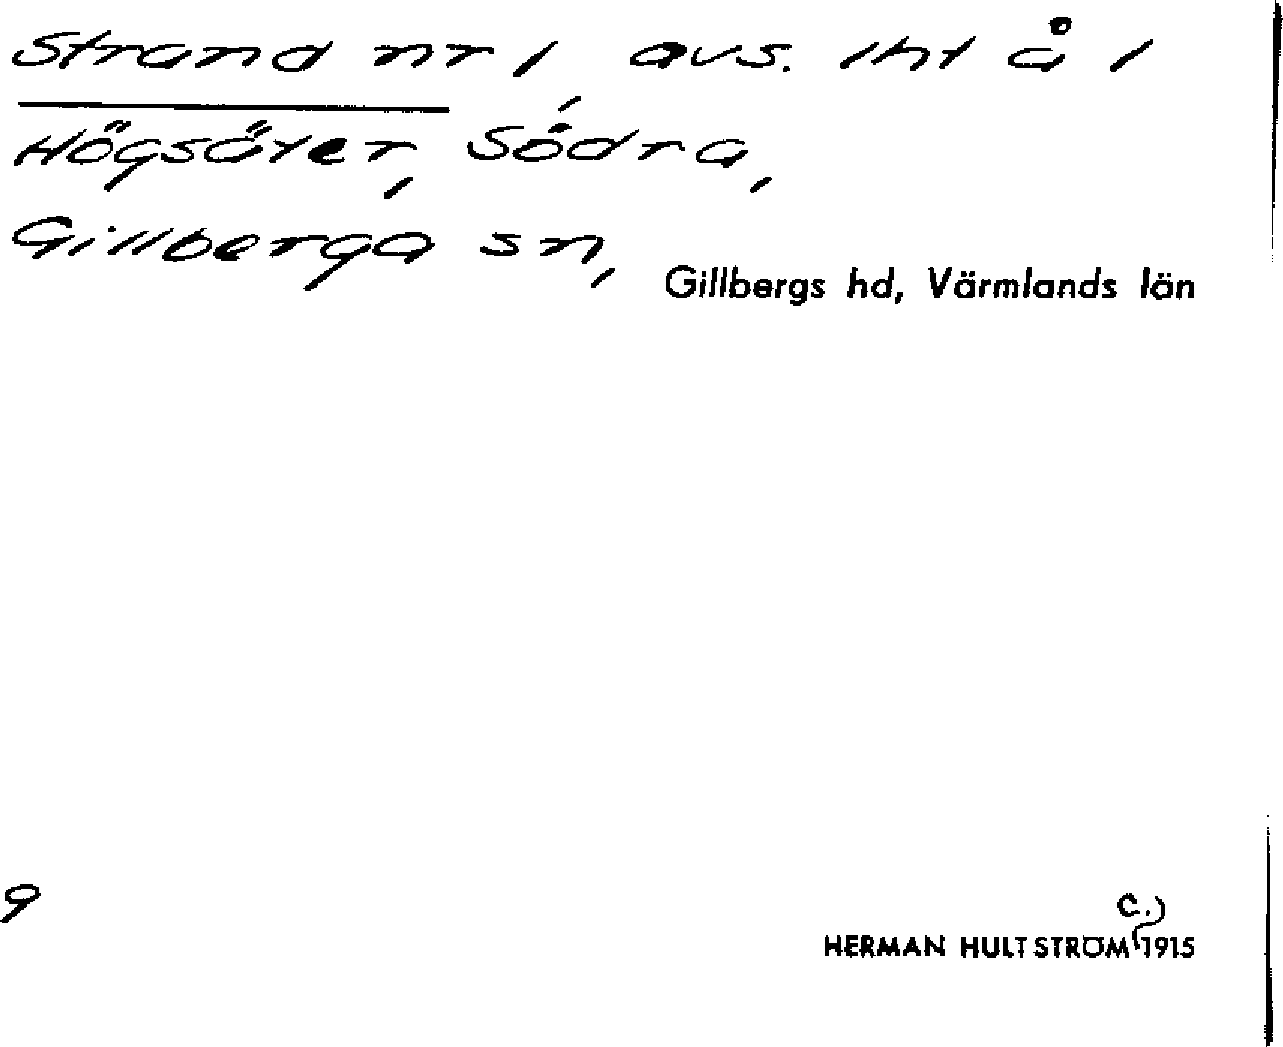 Strand nr 1, avs. lht å 1
Högsäter, Södra,
Gillberga sn,
Gillbergs hd, Värmlands län
9
c.)
HERMAN HULTSTRÖM 1915